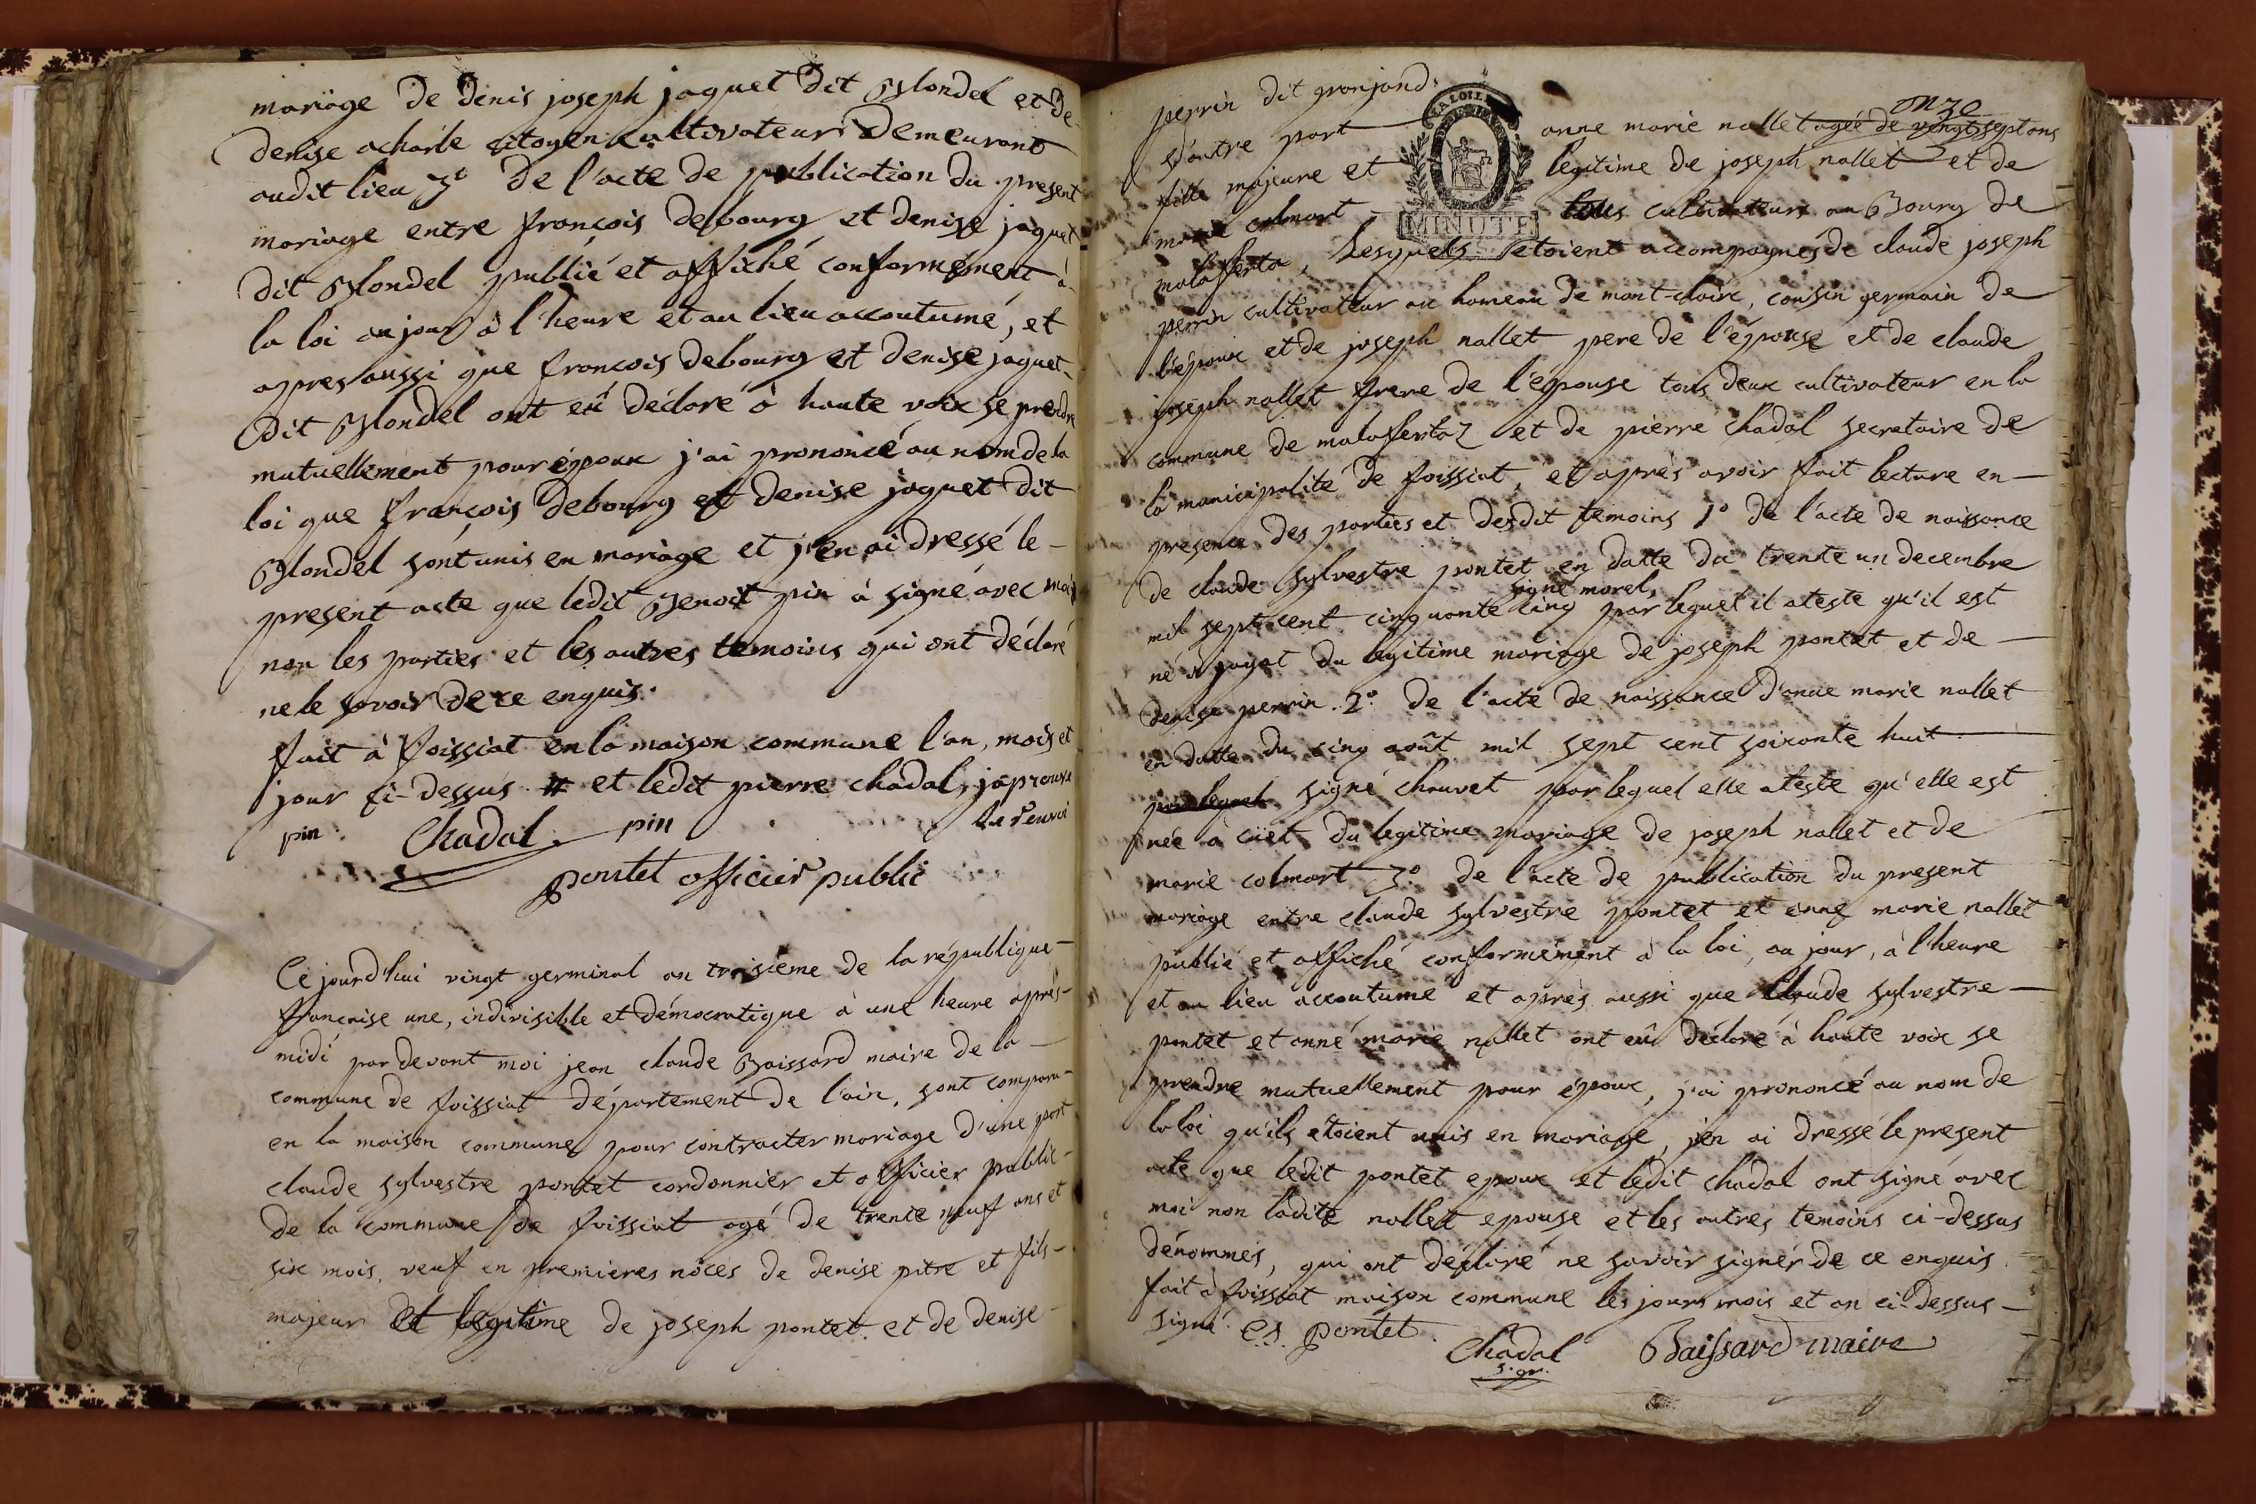 mariage de denis joseph jaquet dit Blondel et de
denise acharle citoyen cultivateurs Demeurant
audit lieu 3° de l'acte de publication du present
mariage entre françois debourg et denise jaquet
dit Blondel publié et affiché conformément à
la loi au jour à l'heure et au lieu accoutumé, et
apres aussi que françois debourg et denise jaquet
dit Blondel ont eû déclaré à haute voix se prendre
mutuellement pour époux j'ai prononcé au nom de la
loi que françois debourg et denise jaquet dit
Blondel sont unis en mariage et j'en ai dressé le
present acte que ledit Benoit pin à signé avec moi
non les parties et les autres temoins qui ont déclaré
ne le savoir de ce enquis.
fait à foissiat en la maison commune l'an, mois et
jour ci-dessus # et ledit pierre chadal, japrouve
le renvoi
pin. Chadal pin
pontet officier public
Ce jourd'hui vingt germinal an troisieme de la république
française une, indivisible et démocratique à une heure après
midi par devant moi jean claude Baissard maire de la
commune de foissiat département de l'ain, sont comparu
en la maison commune pour contracter mariage d'une part
claude sylvestre pontet cordonnier et officier public
de la commune de foissiat agé de trente neuf ans et
six mois, veuf en premieres noces de denise pitre et fils
majeur et legitime de joseph pontet et de denise
onze
perrin dit granjand.
LA LOI LE
d'autre part anne marie nallet agée de vingt sept ans
fille majeure et legitime de joseph nallet et de
marie colmart tous cultivateurs au Bourg de
MINUTE
malafretaz, Lesquels etoient accompagnés de claude joseph
perrin cultivateur au hameau de mont-claire, cousin germain de
l'époux et de joseph nallet pere de l'épouse et de claude
joseph nallet frere de l'épouse tous deux cultivateur en la
commune de malafretaz et de pierre chadal secretaire de
la municipalité de foissiat, et après avoir fait lecture en
presence des parties et desdit temoins 1° de l'acte de naissance
de claude sylvestre pontet en datte du trente un decembre
signé morel,
mil sept cent cinquante cinq par lequel il ateste qu'il est
né à jayat du legitime mariage de joseph pontet et de
denise perrin. 2° de l'acte de naissance d'anne marie nallet
en datte du cinq août mil sept cent soixante huit
par lequel signé chauvet par lequel elle ateste qu'elle est
née à cuet du legitime mariage de joseph nallet et de
marie colmart 3° de l'acte de publication du present
mariage entre claude sylvestre pontet et anne marie nallet
publié et affiché conformément à la loi, au jour, à l'heure
et au lieu accoutumé et après aussi que Claude sylvestre
pontet et anne marie nallet ont eû déclaré à haute voix se
prendre mutuellement pour époux, j'ai prononcé au nom de
la loi qu'ils etoient unis en mariage, j'en ai dressé le present
acte que ledit pontet epoux et ledit chadal ont signé avec
moi non ladite nallet epouse et les autres temoins ci-dessus
dénommés, qui ont déclaré ne savoir signér de ce enquis.
fait à foissiat maison commune les jours mois et an ci-dessus
signé. C.S. pontet. Chadal Baissard maire
s.gr.